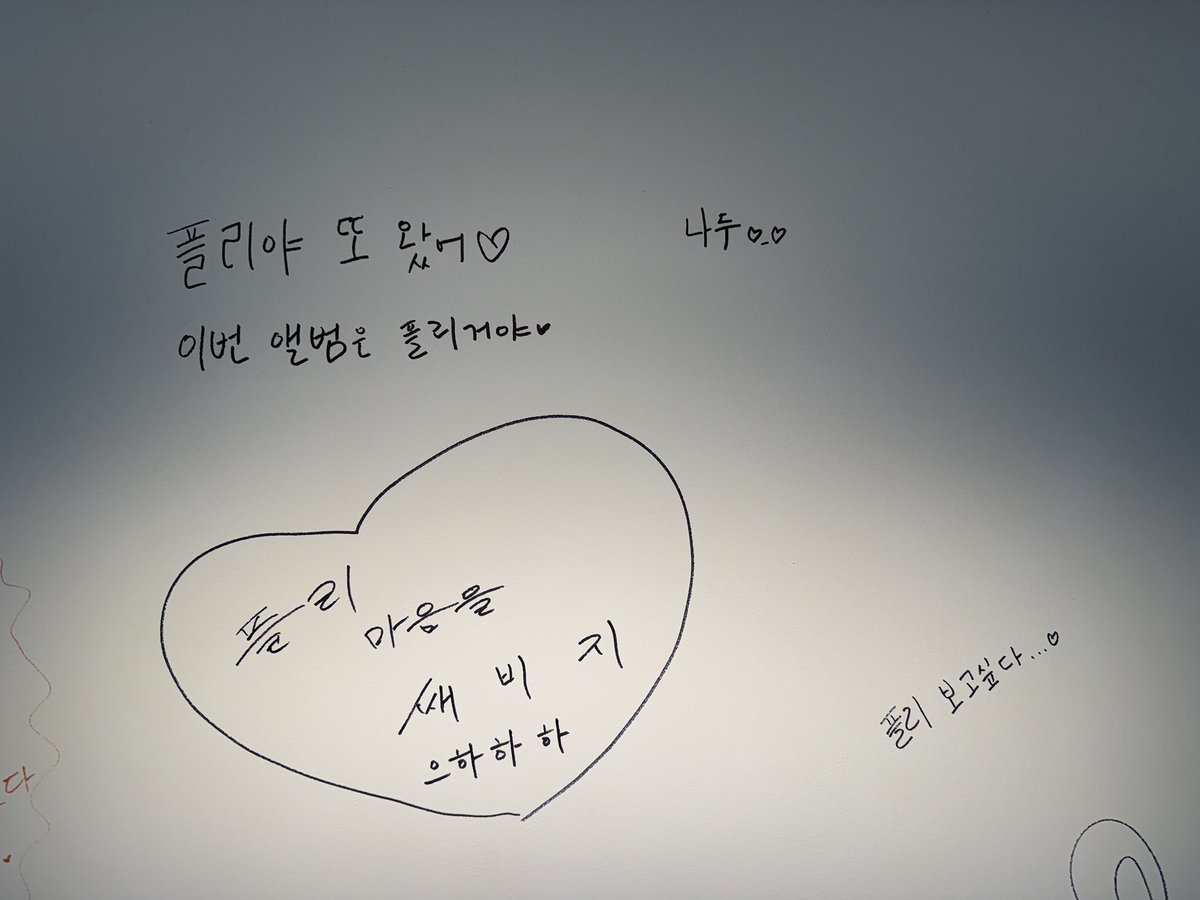 플리야 또 왔어♡
나두♡_♡
이번 앨범은 플리거야♥
플리 마음을
쌔비지
으하하하
플리 보고싶다...♡
다